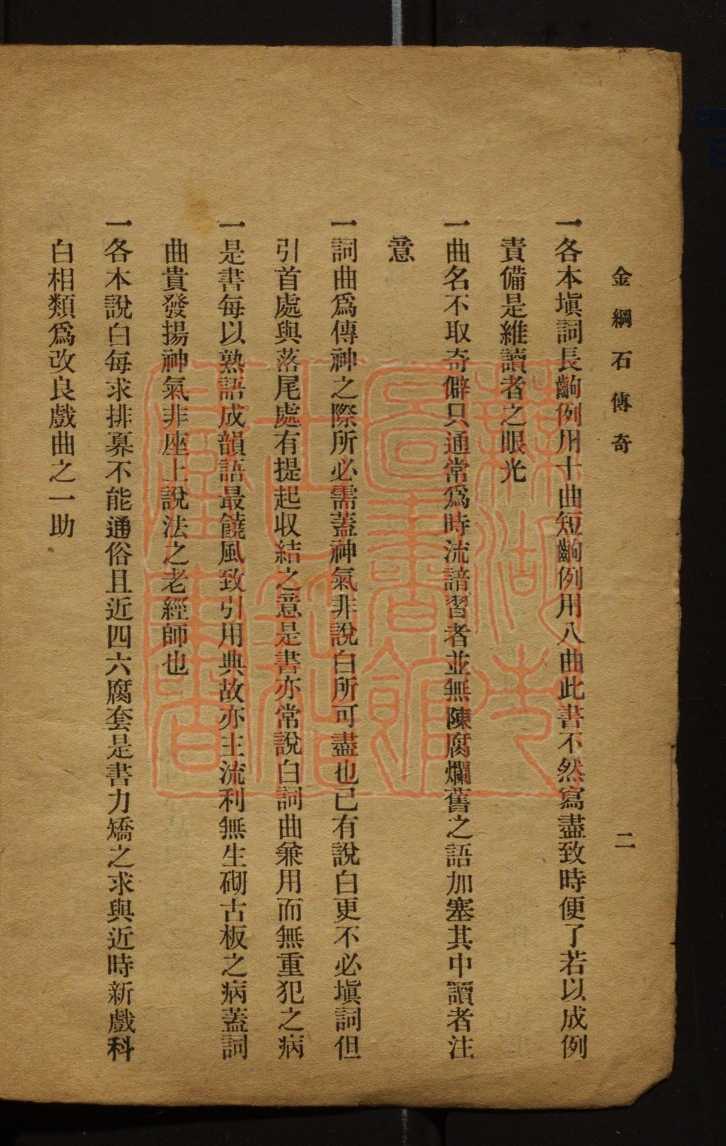 金綱石傳奇 二
一各本塡詞長齣例用十曲短齣例用八曲此書不然寫盡致時便了若以成例
責備是維讀者之眼光
一曲名不取奇僻只通常爲時流諳習者並無陳腐爛舊之語加塞其中讀者注
意
一詞曲爲傳神之際所必需蓋神氣非說白所可盡也已有說白更不必塡詞但
引首處與落尾處有提起収結之意是書亦常說白詞曲兼用而無重犯之病
一是書每以熟語成韻語最饒風致引用典故亦主流利無生砌古板之病蓋詞
曲貴發揚神氣非座上說法之老經師也
一各本說白每求排募不能通俗且近四六腐套是書力矯之求與近時新戲科
白相類爲改良戲曲之一助